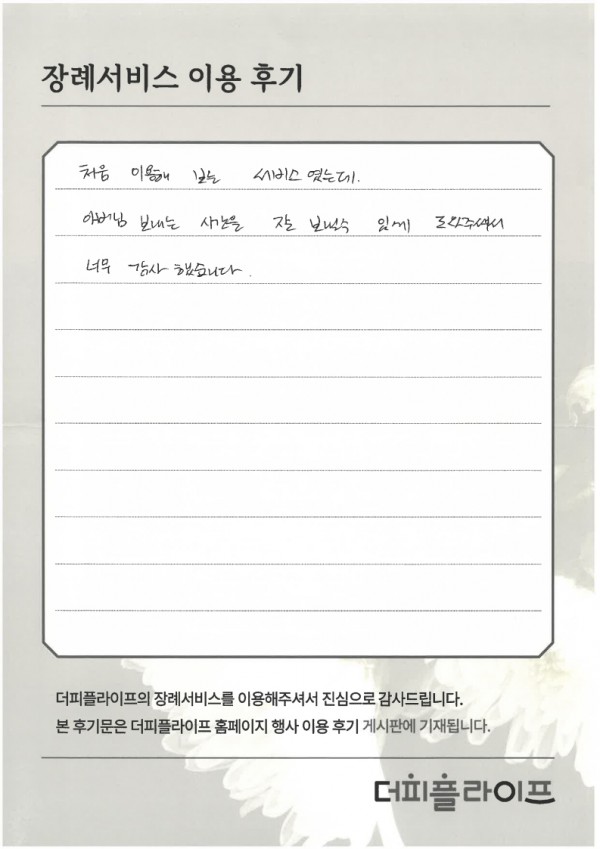 장례서비스 이용 후기
처음 이용해 보는 서비스 였는데.
아버님 보내는 시간을 잘 보낼수 있게 도와주셔서
너무 감사 했습니다.
더피플라이프의 장례서비스를 이용해주셔서 진심으로 감사드립니다.
본 후기문은 더피플라이프 홈페이지 행사 이용 후기 게시판에 기재됩니다.
더피플라이프